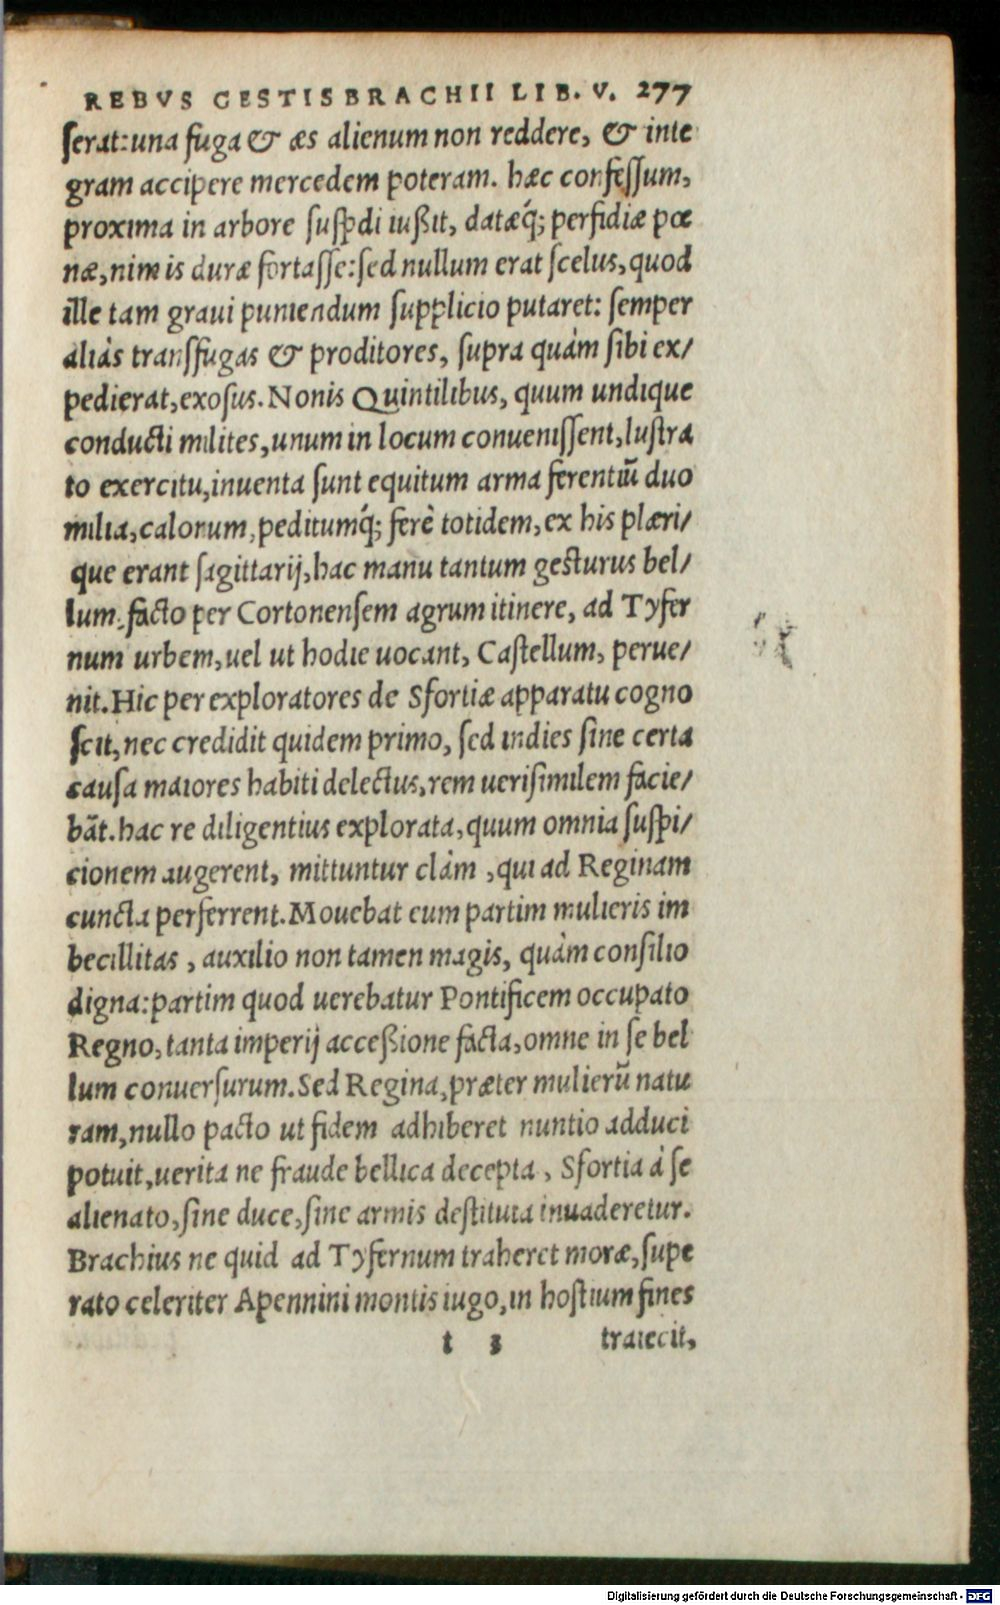 REBVS GESTIS BRACHII LIB. V. 277
ſerat: una fuga & æs alienum non reddere, & inte
gram accipere mercedem poteram. hæc confeſſum,
proxima in arbore ſuſp̃di iußit, datæq́; perfidiæ pœ
næ, nimis duræ fortaſſe: ſed nullum erat ſcelus, quod
ille tam graui puniendum ſupplicio putaret: ſemper
aliâs transfugas & proditores, ſupra quàm ſibi ex/
pedierat, exoſus. Nonis Quintilibus, quum undique
conducti milites, unum in locum conueniſſent, luſtra
to exercitu, inuenta ſunt equitum arma ferentiũ duo
milia, calonum, peditumq́; ferè totidem, ex his plæri/
que erant ſagittarij, hac manu tantum geſturus bel/
lum. facto per Cortonenſem agrum itinere, ad Tyfer
num urbem, uel ut hodie uocant, Caſtellum, perue/
nit. Hic per exploratores de Sfortiæ apparatu cogno
ſcit, nec credidit quidem primo, ſed indies ſine certa
cauſa maiores habiti delectus, rem ueriſimilem facie/
bãt. hac re diligentius explorata, quum omnia ſuſpi/
cionem augerent, mittuntur clàm, qui ad Reginam
cuncta perferrent. Mouebat eum partim mulieris im
becillitas, auxilio non tamen magis, quàm conſilio
digna: partim quod uerebatur Pontificem occupato
Regno, tanta imperij acceßione facta, omne in ſe bel
lum conuerſurum. Sed Regina, præter mulierũ natu
ram, nullo pacto ut fidem adhiberet nuntio adduci
potuit, uerita ne fraude bellica decepta, Sfortia à ſe
alienato, ſine duce, ſine armis deſtituta inuaderetur.
Brachius ne quid ad Tyfernum traheret moræ, ſupe
rato celeriter Apennini montis iugo, in hoſtium fines
t 3 traiecit,
Digitalisierung gefördert durch die Deutsche Forschungsgemeinschaft - DFG